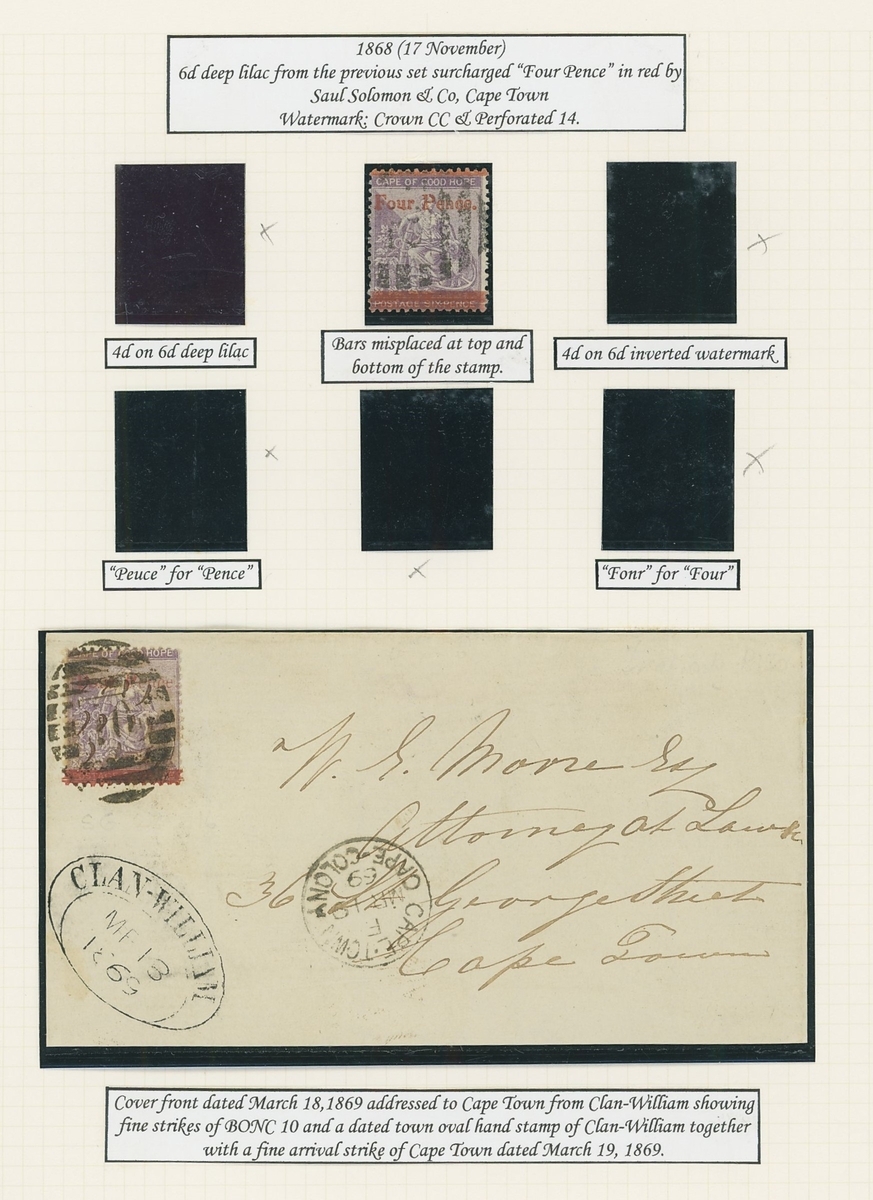 1868 (17 November)
6d deep lilac from the previous set surcharged “Four Pence” in red by
Saul Solomon & Co, Cape Town
Watermark: Crown CC & Perforated 14.
CAPE OF GOOD HOPE
Four Pence.
POSTAGE SIX PENCE
4d on 6d deep lilac
Bars misplaced at top and
bottom of the stamp.
4d on 6d inverted watermark
“Peuce” for “Pence”
“Fonr” for “Four”
HOPE
W. E. Moore Esq
Attorney at Law
36 St Georges Street
Cape Town
CLAN-WILLIAM
MR 18
CAPE TOWN
CAPE COLONY
69
Cover front dated March 18,1869 addressed to Cape Town from Clan-William showing
fine strikes of BONC 10 and a dated town oval hand stamp of Clan-William together
with a fine arrival strike of Cape Town dated March 19, 1869.